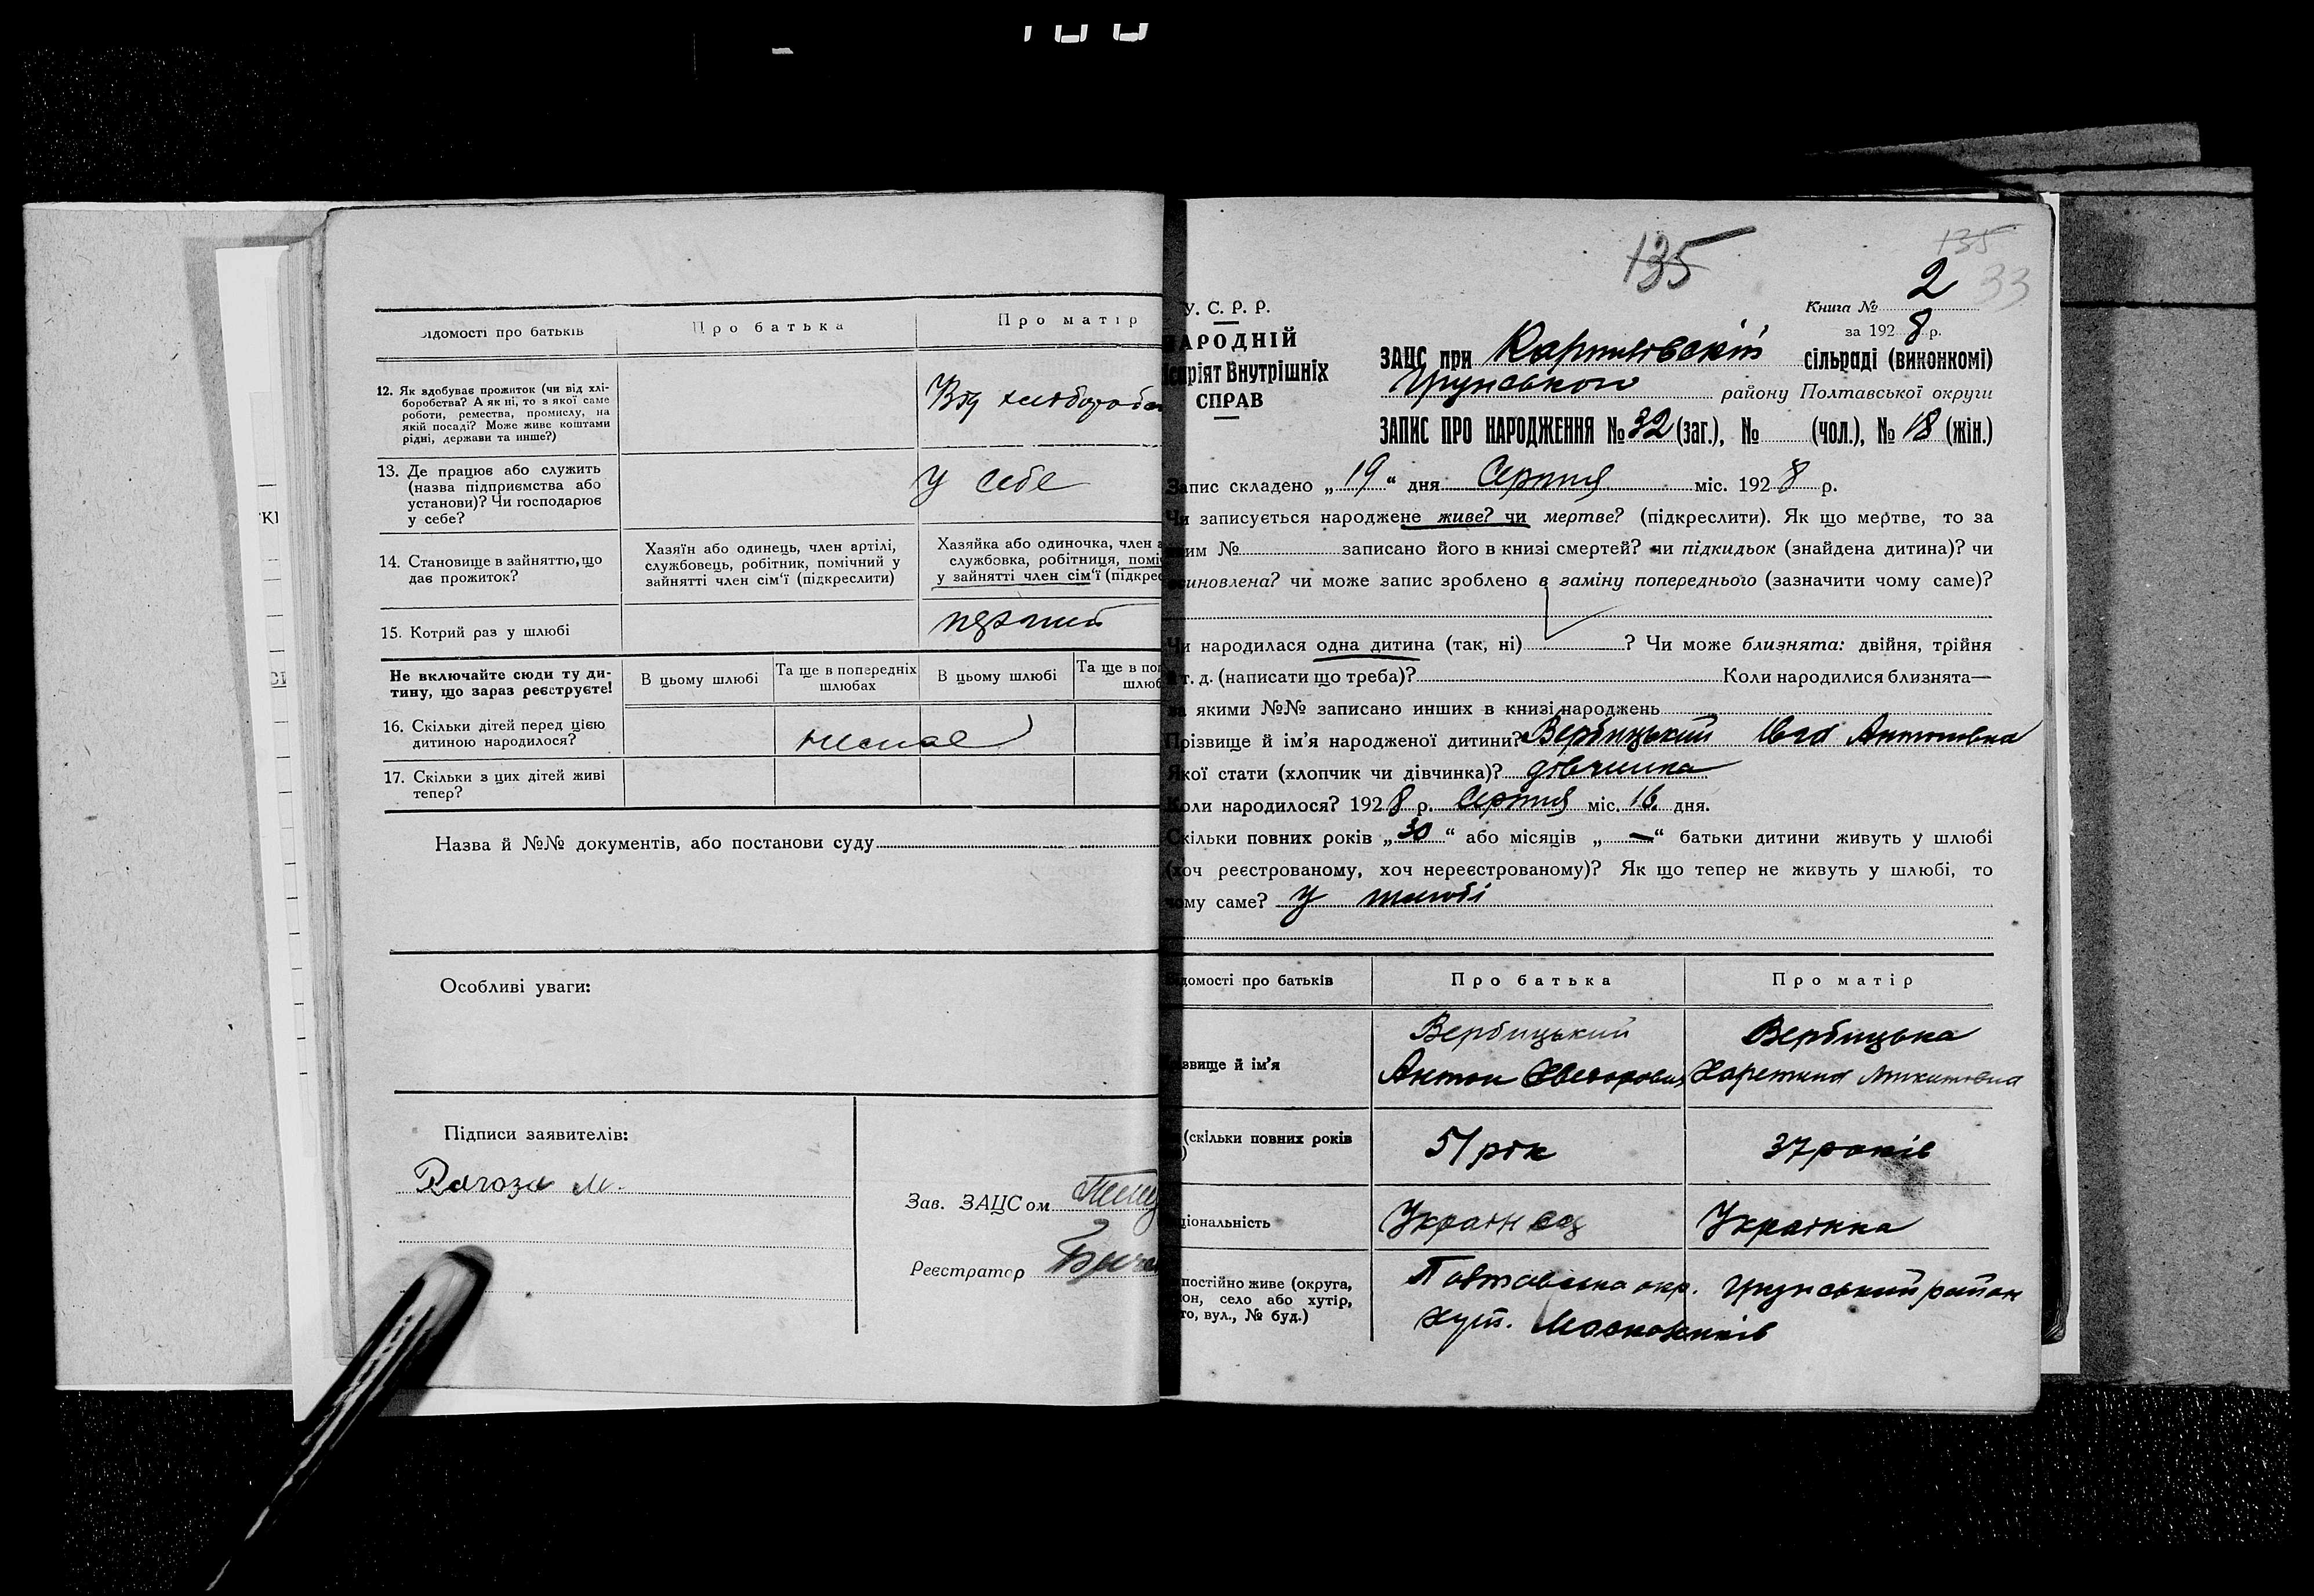 ідомості про батьків
Про батька
Про матір
12. Як здобуває прожиток (чи від хлі-
боробства? А як ні, то з якої саме
роботи, ремества, промислу, на
якій посаді? Може живе коштами
рідні, держави та инше?)
Від хліборобс
13. Де працює або служить
(назва підприємства або
установи)? Чи господарює
у себе?
у себе
14. Становище в зайняттю, що
дає прожиток?
Хазяїн або одинець, член артілі,
службовець, робітник, помічний у
зайнятті член сім'ї (підкреслити)
Хазяйка або одиночка, член а
службовка, робітниця, поміч
у зайнятті член сім'ї (підкрес
15. Котрий раз у шлюбі
перший
Не включайте сюди ту ди-
тину, що зараз реєструєте!
В цьому шлюбі
Та ще в попередніх
шлюбах
В цьому шлюбі
Та ще в поп
шлюб
16. Скільки дітей перед цією
дитиною народилося?
немає
17. Скільки з цих дітей живі
тепер?
Назва й №№ документів, або постанови суду
Особливі уваги:
Підписи заявителів:
Рагоза М.
Зав. ЗАЦСом
Реєстратор
135
135
33
У. С. Р. Р.
НАРОДНІЙ
ісаріят Внутрішніх
СПРАВ
Книга № 2
за 1928 р.
ЗАЦС при сільраді (виконкомі)
Грунського району Полтавської округи
ЗАПИС ПРО НАРОДЖЕННЯ № 32 (заг.), № (чол.), № 18 (жін.)
Запис складено „19“ дня Серпня міс. 1928 р.
Чи записується народжене живе? чи мертве? (підкреслити). Як що мертве, то за
яким № записано його в книзі смертей? чи підкидьок (знайдена дитина)? чи
усиновлена? чи може запис зроблено в заміну попереднього (зазначити чому саме)?
Чи народилася одна дитина (так, ні) ? Чи може близнята: двійня, трійня
й т. д. (написати що треба)? Коли народилися близнята—
за якими №№ записано инших в книзі народжень
Прізвище й ім'я народженої дитини? Вербицький Антоновна
Якої стати (хлопчик чи дівчинка)? дівчинка
Коли народилося? 1928 р. Серпня міс. 16 дня.
Скільки повних років „30“ або місяців „—“ батьки дитини живуть у шлюбі
(хоч реєстрованому, хоч нереєстрованому)? Як що тепер не живуть у шлюбі, то
чому саме? У шлюбі
ідомості про батьків
Про батька
Про матір
звище й ім'я
Вербицький
Антон Хведорович
Вербицька
Харетина Микитовна
(скільки повних років
)
51 рік
37 років
ціональність
Українець
Українка
постійно живе (округа,
он, село або хутір,
то, вул., № буд.)
Полтавська окр. Грунський район
хут.